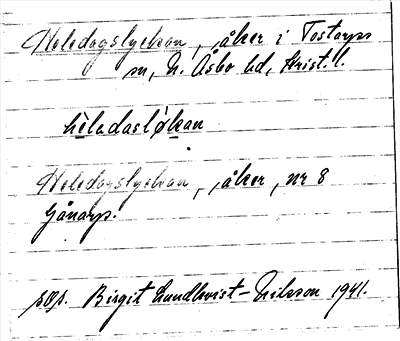 Heledagslyckan, åker i Tostarps
sn, N. Åsbo hd, Krist. l.
hèladasló̱kan
Heledagslyckan, åker, nr 8
Gånarp.
Birgit Lundkvist-Nilsson 1941.